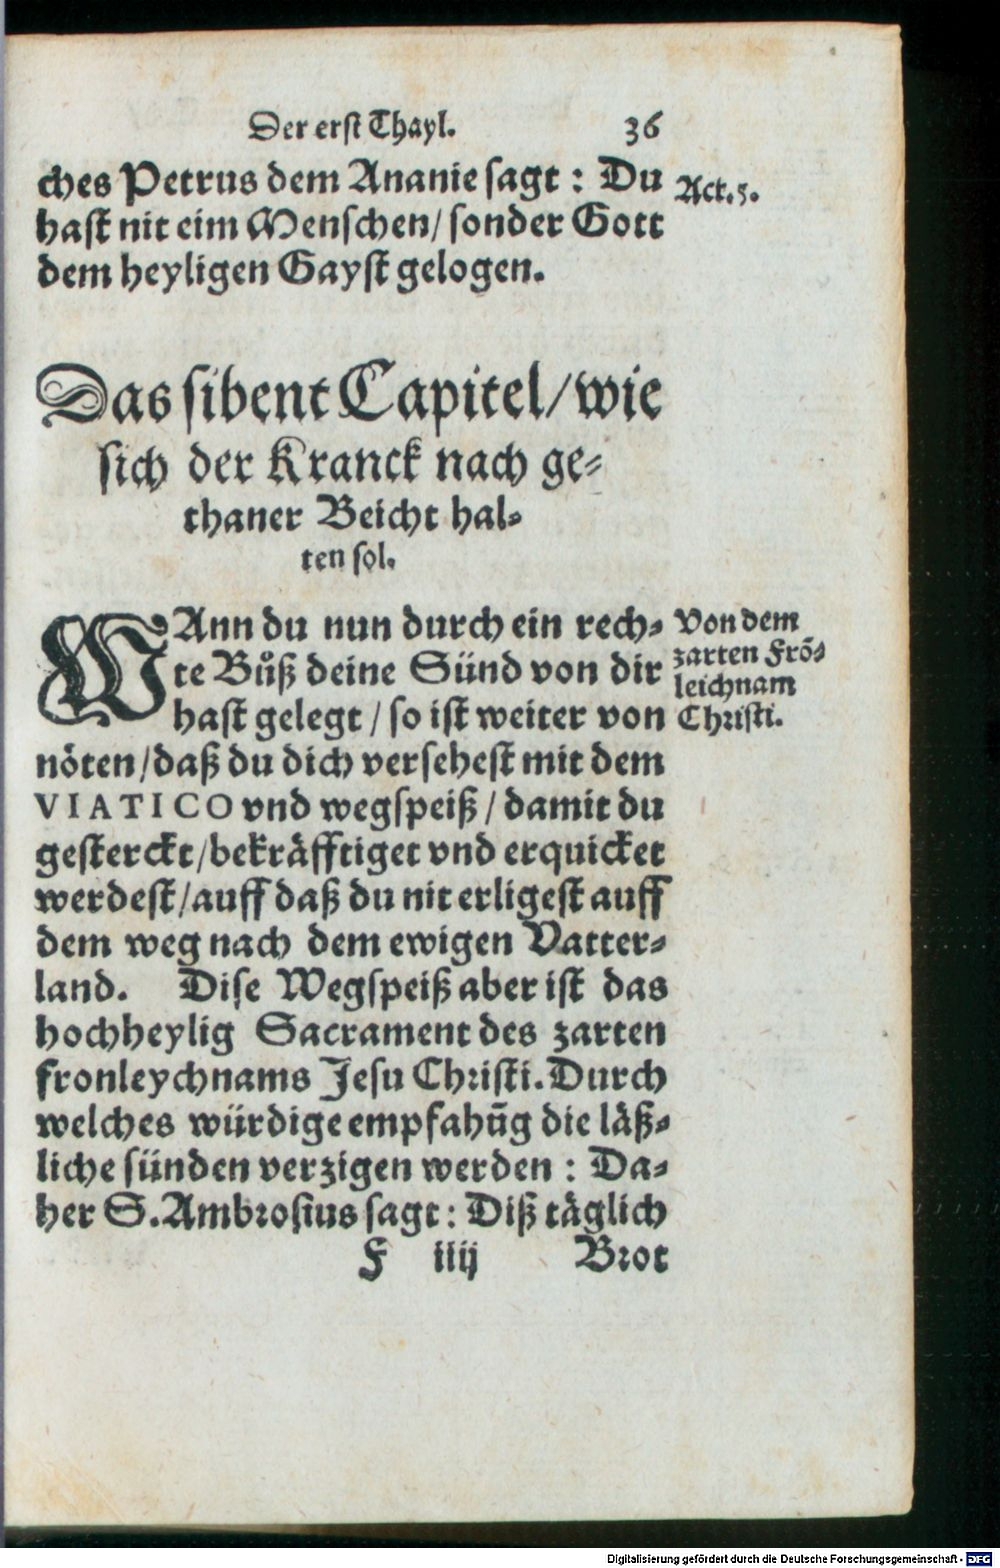 Der erst Thayl. 36
ches Petrus dem Ananie sagt : Du
hast nit eim Menschen/ sonder Gott
dem heyligen Gayst gelogen.
Act. 5.
Das sibent Capitel/ wie
sich der Kranck nach ge⸗
thaner Beicht hal⸗
ten sol.
WAnn du nun durch ein rech⸗
te Bůß deine Sünd von dir
hast gelegt / so ist weiter von
nöten/ daß du dich versehest mit dem
VIATICO vnd wegspeiß / damit du
gesterckt/ bekräfftiget vnd erquicket
werdest/ auff daß du nit erligest auff
dem weg nach dem ewigen Vatter⸗
land. Dise Wegspeiß aber ist das
hochheylig Sacrament des zarten
fronleychnams Jesu Christi. Durch
welches würdige empfahūg die läß⸗
liche sünden verzigen werden : Da⸗
her S. Ambrosius sagt : Diß täglich
Von dem
zarten Frō⸗
leichnam
Christi.
F iiij Brot
Digitalisierung gefördert durch die Deutsche Forschungsgemeinschaft - DFG